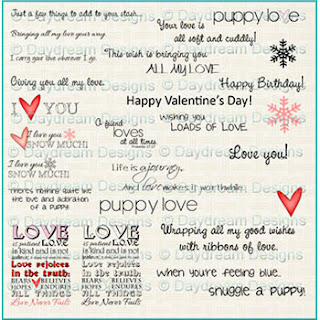 Just a few things to add to your stash...
puppy love
Your love is
all soft and cuddly!
Bringing all my love your way.
I carry you wherever I go.
This wish is bringing you
ALL MY LOVE
Giving you all my love.
Happy Birthday!
I YOU
Happy Valentine's Day!
wishing you
LOADS OF LOVE
A friend
loves
at all times.
I love you
SNOW MUCH!
Love you!
I love you
SNOW MUCH!
Life is a journey,
And love makes it worthwhile.
There's nothing quite like
the love and adoration
of a puppy!
puppy love
LOVE
is patient LOVE
is kind and is not
Love rejoices
in the truth;
BEARS BELIEVES
HOPES ENDURES
ALL THINGS
Love Never Fails
LOVE
is patient LOVE
is kind and is not
Love rejoices
in the truth;
BEARS BELIEVES
HOPES ENDURES
ALL THINGS
Love Never Fails
Wrapping all my good wishes
with ribbons of love.
when you're feeling blue,
snuggle a puppy!
© Daydream Designs